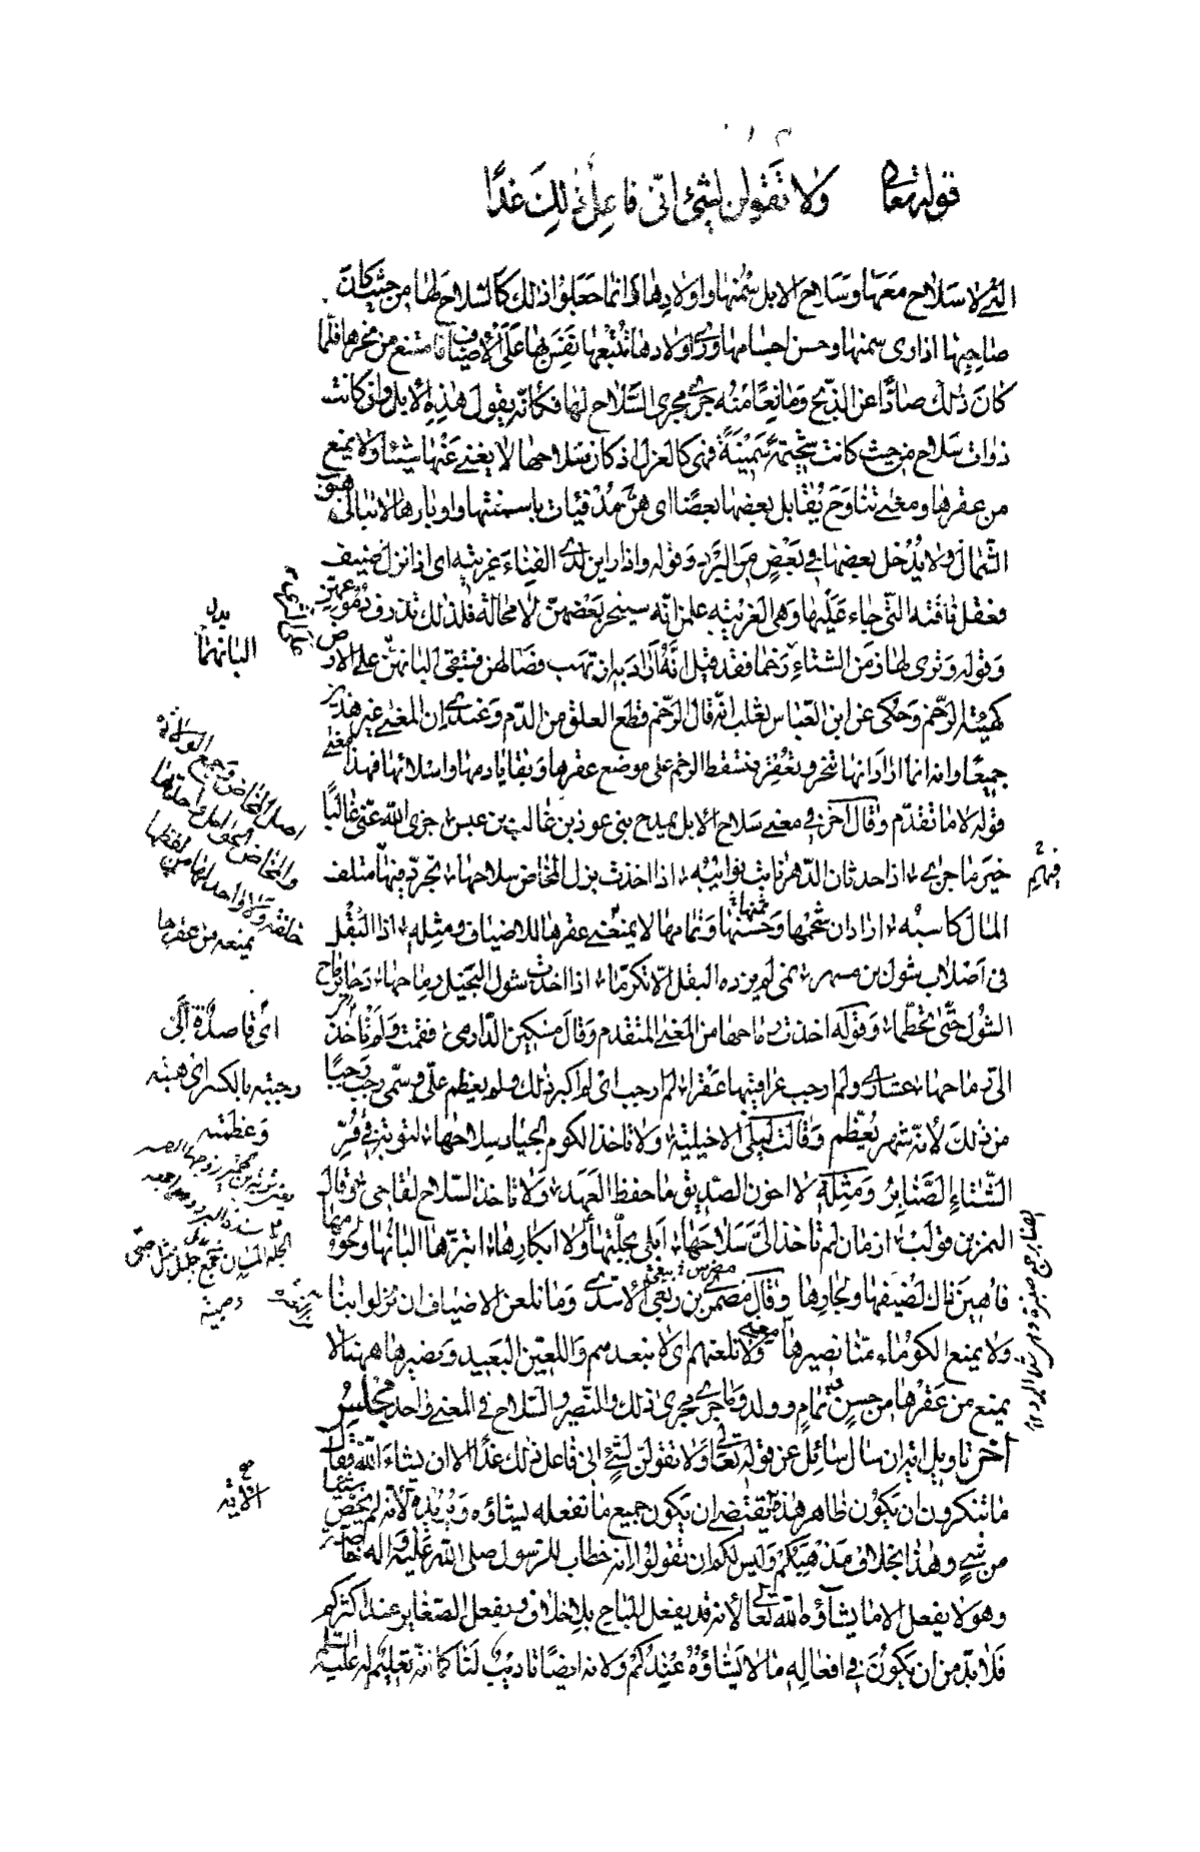 قوله تعالى ولا تقولن لشئ انى فاعل ذلك غدا
التى لا سلاح معها وسلاح الابل سمنها واولادها وانما جعلوا ذلك كالسلاح لها من حيث كان
صاحبها اذا راى سمنها وحسن اجسامها وراى اولادها تتبعها نفس بها على الاضياف فامتنع من نحرها فلما
كان ذلك صادا عن الذبح ومانعا منه جرى مجرى السلاح لها فكانه يقول هذه الابل وان كانت
ذوات سلاح من حيث كانت شحيمة سمينة فهى كالعزل اذ كان سلاحها لا يغنى عنها شيئا ولا يمنع
من عقرها ومعنى تناوح يقابل بعضها بعضا اى هن مدفئات باسنمتها واوبارها لا تبالى هبوب
الشمال ولا يدخل بعضها فى بعض من البرد وقوله واذا راين لدى الفناء غريبة اى اذا نزل ضيف
فعقل ناقته التى جاء عليها وهى الغريبة علمن انه سينحر بعضهن لا محالة فلذلك تذرف دموعهن
وقوله وترى لها زمن الشتاء رخما فقد قيل انه اراد به ان تهب فصالهن فتبقى البانهن على الارض
كهيئة الرخم وحكى عن ابن العباس ثعلب انه قال الرخم قطع العلق من الدم وعندى ان المعنى غير هذين
جميعا وانه انما اراد انها تنحر وتعقر فتسقط الرخم على موضع عقرها وبقايا دمها واسلائها فهذا معنى
قوله لا ما تقدم وقال آخر فى معنى سلاح الابل يمدح بنى عوذ بن غالب بن عبس جزى الله عنى غالبا
خير ما جزى اذا حدثان الدهر نابت نوائبه اذا اخذت بزل المخاض سلاحها تجرد فيها متلف
المال كاسبه اراد ان شحمها وحسنها وتمامها لا يمنعه من عقرها للاضياف ومثله اذا البقل
فى اصلاب شول بن مسهر نمى لم يزده البقل الا تكرما اذا اخذت شول البخيل رماحها دحا برماح
الشول حتى تحطما وقوله اخذت رماحها من المعنى المتقدم وقال مسكين الدارمى فقمت ولم تاخذ
الى رماحها عشارى ولم ارجب عراقيبها عقرا لم ارجب اى لم اكبر ذلك ولم يعظم على وسمى رجب رجبا
من ذلك لانه شهر يعظم وقالت ليلى الاخيلية ولا تاخذ الكوم الجياد سلاحها لتوبة فى قر
الشتاء الصنابر ومثله لا اخون الصديق ما حفظ العهد ولا تاخذ السلاح لقاحى وقال
النمر بن تولب ازمان لم تاخذ الى سلاحها ابلى بجلتها ولا ابكارها ابتزها البانها ولحومها
فاهين ذاك لضيفها ولجارها وقال مضرس بن ربعى الاسدى وما نلعن الاضياف ان نزلوا بنا
ولا يمنع الكوماء منا نصيرها معنى ولا نلعنهم اى لا نبعدهم واللعين البعيد ونصيرها ههنا لا
يمنع من عقرها من حسن وتمام وولد وما جرى مجرى ذلك والنصير والسلاح فى المعنى واحد مجلس
آخر تاويل اية ان سال سائل عن قوله تعالى ولا تقولن لشئ انى فاعل ذلك غدا الا ان يشاء الله فقال
ما تنكرون ان يكون ظاهر هذه الآية يقتضى ان يكون جميع ما نفعله يشاؤه ويريده لانه لم يخص شيئا
من شئ وهذا بخلاف مذهبكم وليس لكم ان تقولوا انه خطاب للرسول صلى الله عليه واله خاصة
وهو لا يفعل الا ما يشاؤه الله تعالى لانه قد يفعل المباح بلا خلاف ويفعل الصغاير عند اكثركم
فلا بد من ان يكون فى افعاله ما لا يشاؤه عندكم ولانه ايضا تاديب لنا كما انه تعليم له عليه السلام
بدل
البانها
اصل المخاض وجع الولادة
والمخاض الحوامل واحدتها
خلفة ولا واحد لها من لفظها
يمنعه من عقرها
اى قاصدة الى
رجبته بالكسر اى هبته
وعظمته
فيهم
الآية